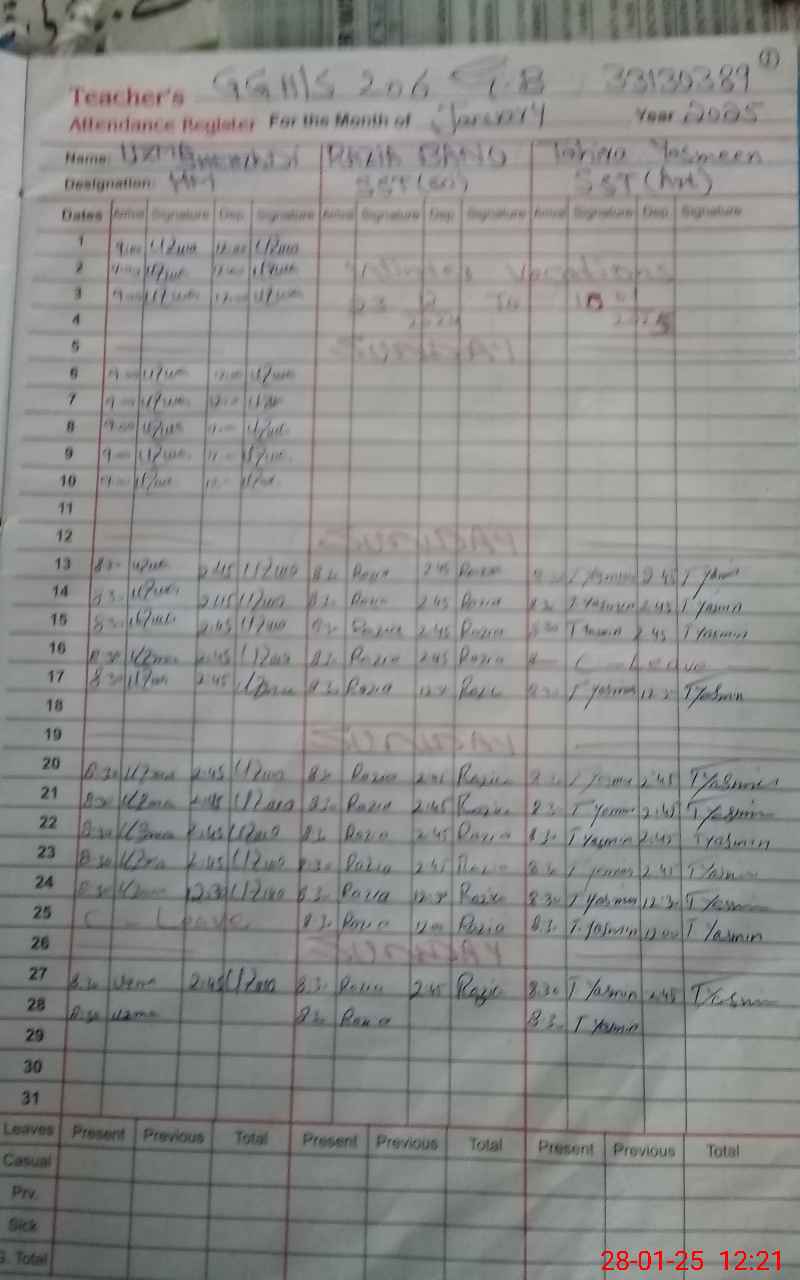 GGHS 206 G.B 33130389 ①
Teacher's
Attendance Register For the Month of January Year 2025
Name: UZMA RAZIA BANO Tahira Yasmeen
Designation: HM SST(sc) SST(Art)
Dates Arrival Signature Dep. Signature Arrival Signature Dep. Signature Arrival Signature Dep. Signature
1 9:00 Uzma 12:00 Uzma
2 9:00 Uzma 12:00 Uzma Winter Vacations
3 9:00 Uzma 12:00 Uzma 23 12 To 10 01
4 2024 2025
5 SUNDAY
6 9:00 Uzma 12:00 Uzma
7 9:00 Uzma 12:00 Uzma
8 9:00 Uzma Uzma
9 9:00 Uzma Uzma
10 9:00 Uzma Uzma
11
12 SUNDAY
13 8:30 Uzma 2:45 Uzma 8:30 Razia 2:45 Razia 8:30 T Yasmin 2:45 T Yasmin
14 8:30 Uzma 2:45 Uzma 8:30 Razia 2:45 Razia 8:30 T Yasmin 2:45 T Yasmin
15 8:30 Uzma 2:45 Uzma 8:30 Razia 2:45 Razia 8:30 T Yasmin 2:45 T Yasmin
16 8:30 Uzma 2:45 Uzma 8:30 Razia 2:45 Razia C - Leave
17 8:30 Uzma 2:45 Uzma 8:30 Razia 12:30 Razia 8:30 T Yasmin 12:30 T Yasmin
18
19 SUNDAY
20 8:30 Uzma 2:45 Uzma 8:30 Razia 2:45 Razia 8:30 T Yasmin 2:45 T Yasmin
21 8:30 Uzma 2:45 Uzma 8:30 Razia 2:45 Razia 8:30 T Yasmin 2:45 T Yasmin
22 8:30 Uzma 2:45 Uzma 8:30 Razia 2:45 Razia 8:30 T Yasmin 2:45 T Yasmin
23 8:30 Uzma 2:45 Uzma 8:30 Razia 2:45 Razia 8:30 T Yasmin 2:45 T Yasmin
24 8:30 Uzma 12:30 Uzma 8:30 Razia 12:30 Razia 8:30 T Yasmin 12:30 T Yasmin
25 C - Leave 8:30 Razia 12:00 Razia 8:30 T. Yasmin 12:00 T Yasmin
26 SUNDAY
27 8:30 Uzma 2:45 Uzma 8:30 Razia 2:45 Razia 8:30 T Yasmin 2:45 T Yasmin
28 8:30 Uzma 8:30 Razia 8:30 T Yasmin
29
30
31
Leaves Present Previous Total Present Previous Total Present Previous Total
Casual
Prv.
Sick
G. Total
28-01-25 12:21